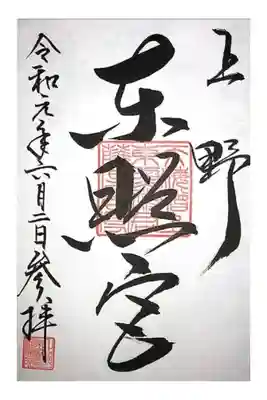 上野
東照宮
令和元年六月二日参拝